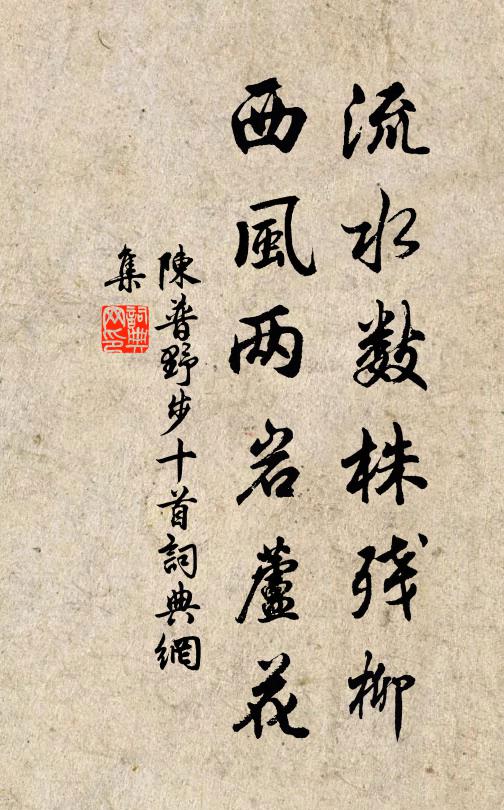 流水数株残柳
西風两岩蘆花
陳普野步十首詞典網
集
詞典
网印